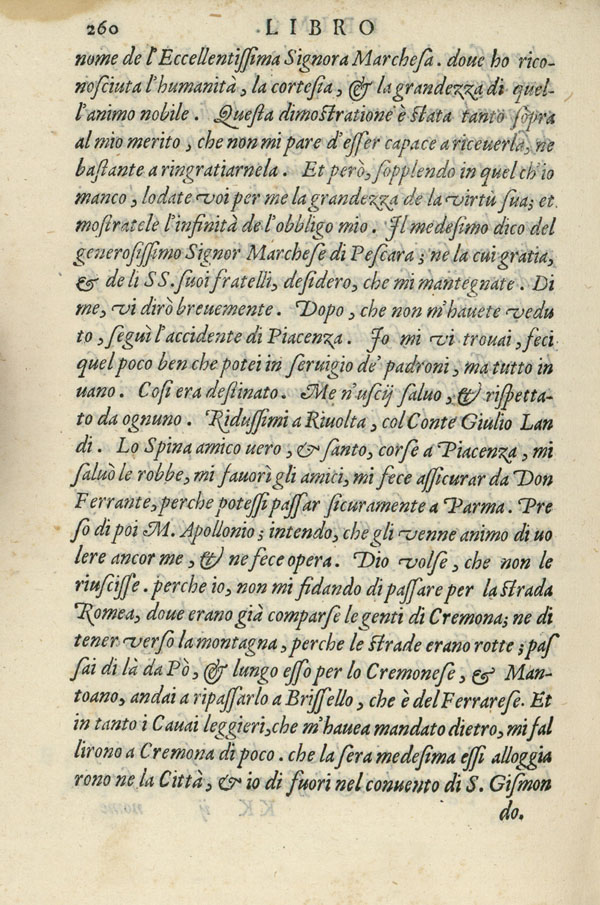 260 LIBRO
nome de l'Eccellentissima Signora Marchesa. doue ho rico-
nosciuta l'humanità, la cortesia, & la grandezza di quel-
l'animo nobile. Questa dimostratione è stata tanto sopra
al mio merito, che non mi pare d'esser capace a riceuerla, ne
bastante a ringratiarnela. Et però, sopplendo in quel ch'io
manco, lodate voi per me la grandezza de la virtù sua; et
mostratele l'infinità de l'obbligo mio. Il medesimo dico del
generosissimo Signor Marchese di Pescara; ne la cui gratia,
& de li SS. suoi fratelli, desidero, che mi mantegnate. Di
me, vi dirò breuemente. Dopo, che non m'hauete vedu
to, seguì l'accidente di Piacenza. Io mi vi trouai, feci
quel poco ben che potei in seruigio de' padroni, ma tutto in
uano. Cosi era destinato. Me n'uscij saluo, & rispetta-
to da ognuno. Ridussimi a Riuolta, col Conte Giulio Lan
di. Lo Spina amico uero, & santo, corse a Piacenza, mi
saluò le robbe, mi fauorì gli amici, mi fece assicurar da Don
Ferrante, perche potessi passar sicuramente a Parma. Pre
so di poi M. Apollonio; intendo, che gli venne animo di uo
lere ancor me, & ne fece opera. Dio volse, che non le
riuscisse. perche io, non mi fidando di passare per la strada
Romea, doue erano già comparse le genti di Cremona; ne di
tener verso la montagna, perche le strade erano rotte; pas
sai di là da Pò, & lungo esso per lo Cremonese, & Man-
toano, andai a ripassarlo a Brissello, che è del Ferrarese. Et
in tanto i Cauai leggieri, che m'hauea mandato dietro, mi fal
lirono a Cremona di poco. che la sera medesima essi alloggia
rono ne la Città, & io di fuori nel conuento di S. Gismon
do.